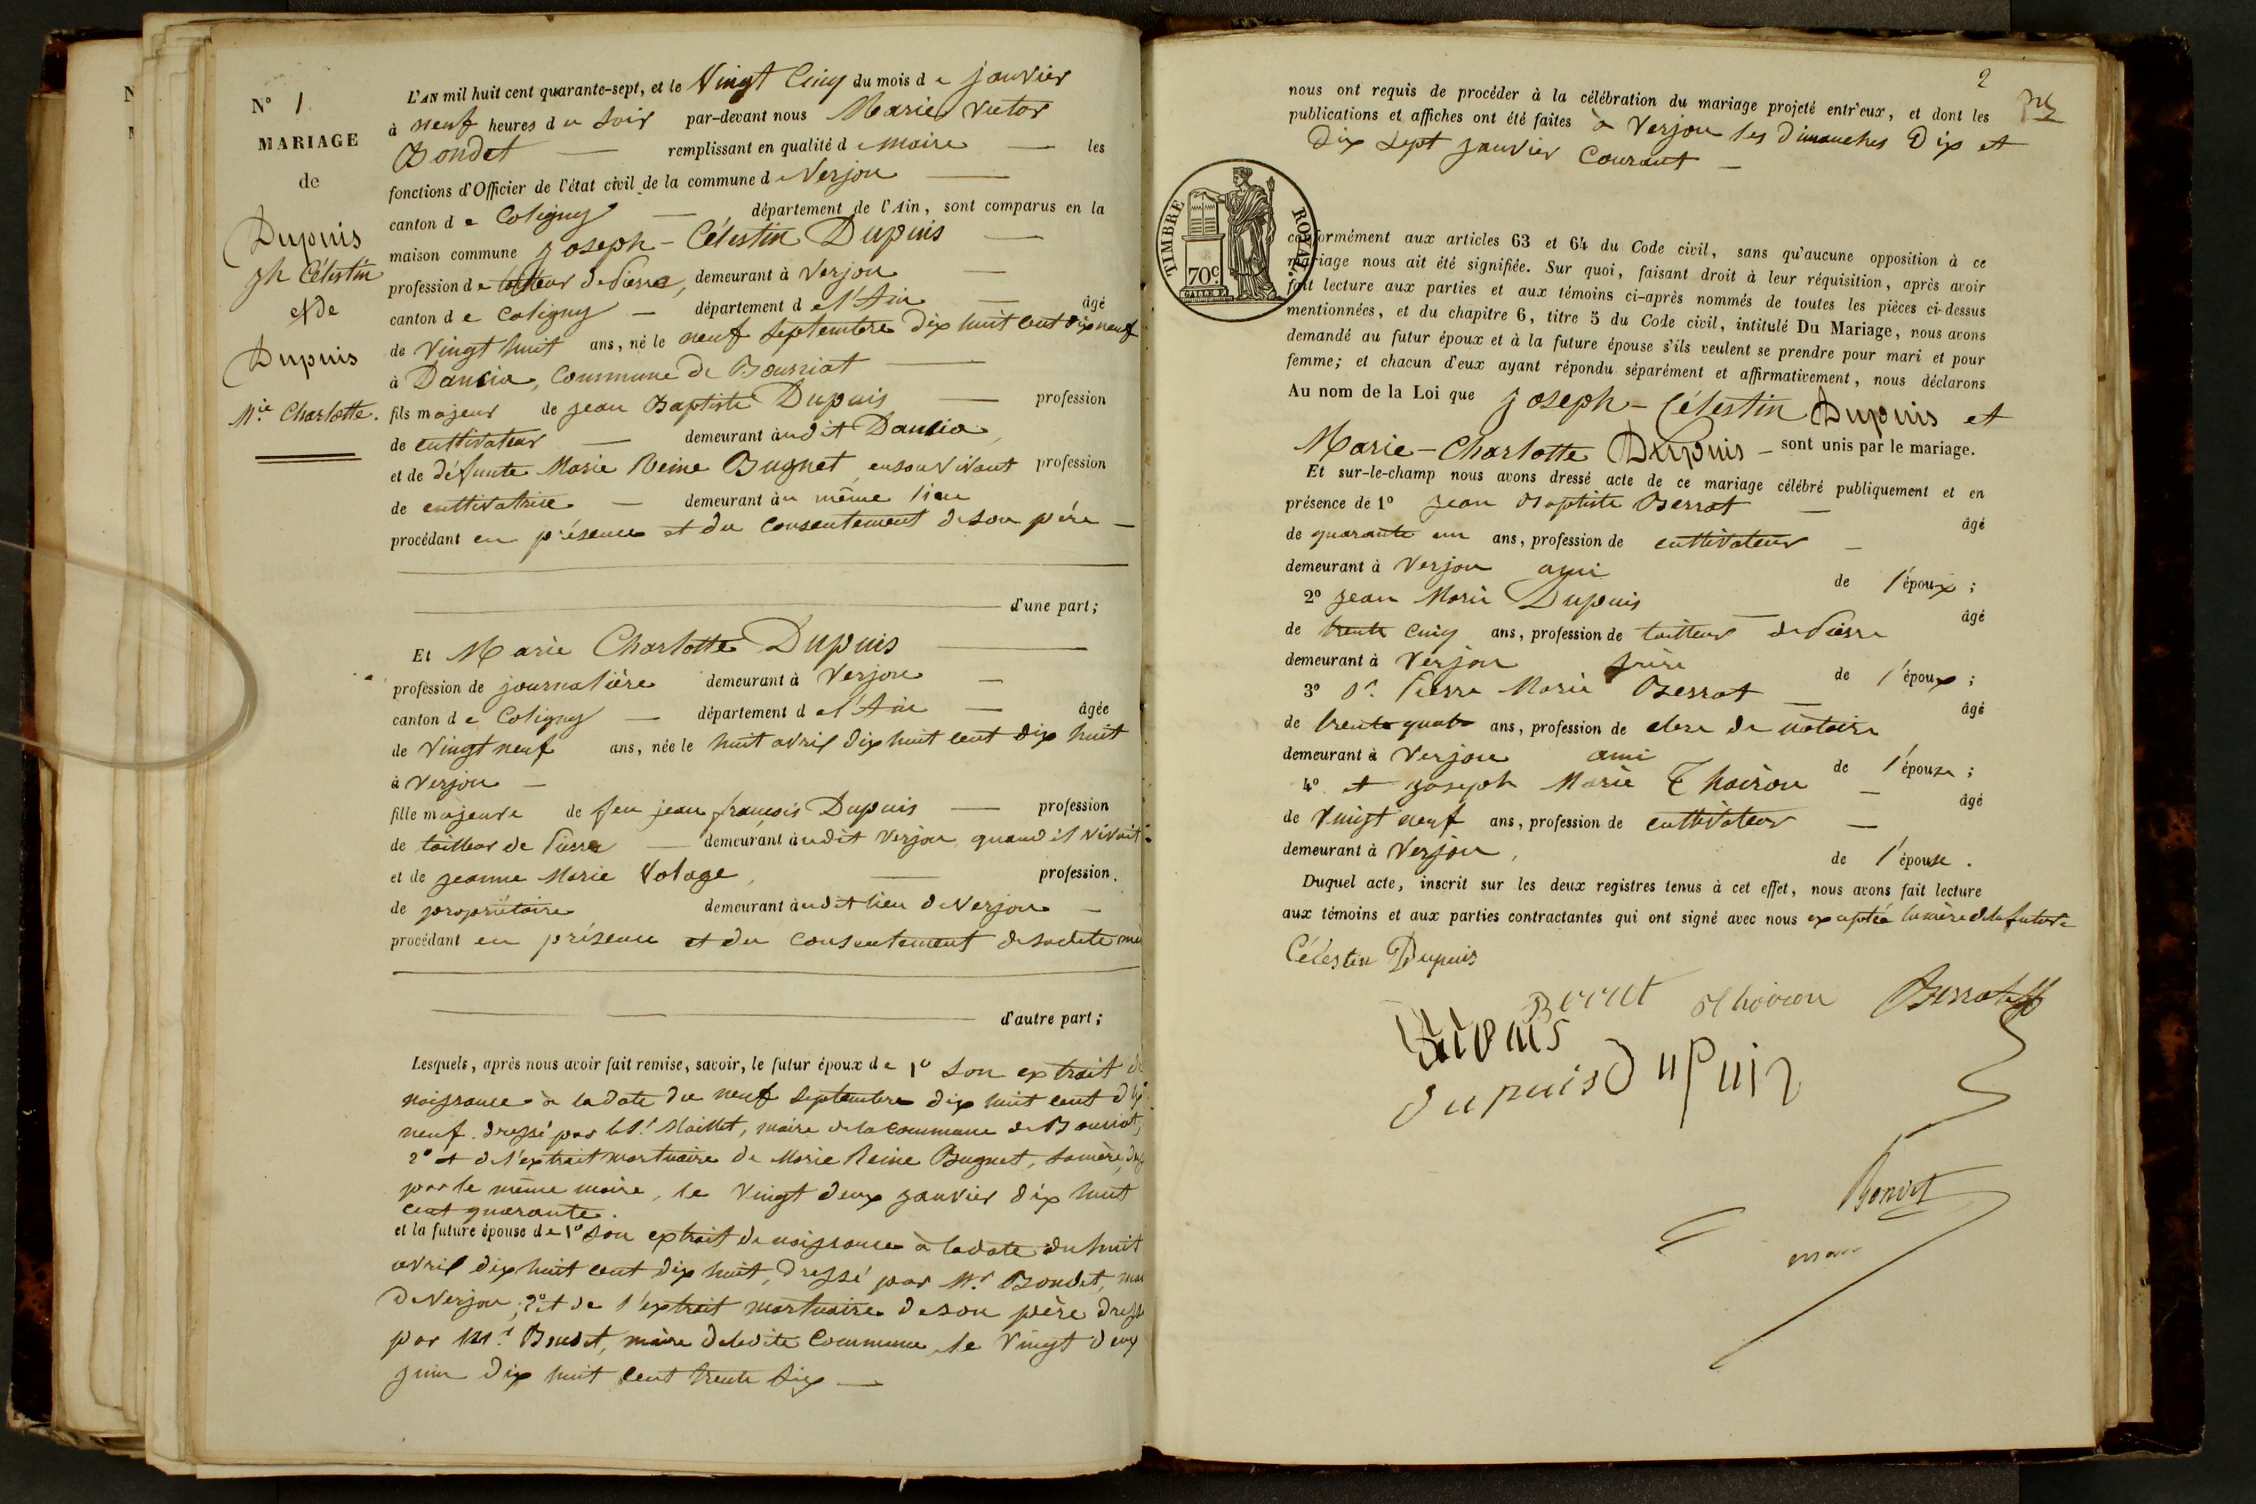 N° 1
MARIAGE
de
Dupuis
Jh Célestin
et de
Dupuis
Mie Charlotte.
L'AN mil huit cent quarante-sept, et le Vingt Cinq du mois de janvier
à neuf heures du soir par-devant nous Marie Victor
Bondet — remplissant en qualité de maire — les
fonctions d'Officier de l'état civil de la commune de Verjon —
canton de Coligny — département de l'Ain, sont comparus en la
maison commune Joseph-Célestin Dupuis —
profession de tailleur de Pierre, demeurant à Verjon —
canton de Coligny — département de l'Ain — âgé
de Vingt huit ans, né le neuf Septembre dix huit cent dix neuf
à Dancia, Commune de Bourriat —
fils majeur de Jean Baptiste Dupuis — profession
de cultivateur — demeurant audit Dancia,
et de défunte Marie Reine Bugnet, en son vivant profession
de cultivatrice — demeurant au même lieu
procédant en présence et du consentement de son père —
d'une part;
Et Marie Charlotte Dupuis —
profession de journalière demeurant à Verjon —
canton de Coligny — département de l'Ain — âgée
de Vingt neuf ans, née le huit avril dix huit cent dix huit
à Verjon —
fille majeure de feu jean françois Dupuis — profession
de tailleur de Pierre — demeurant audit Verjon, quand il vivait
et de Jeanne Marie Volage, — profession
de propriétaire demeurant audit lieu de Verjon —
procédant en présence et du consentement de sadite mè
d'autre part;
Lesquels, après nous avoir fait remise, savoir, le futur époux de 1° son extrait de
naissance à la date du neuf Septembre dix huit cent dix
neuf, dressé par le Sr Maillet, maire de la commune de Bourriat,
2° et de l'extrait mortuaire de Marie Reine Bugnet, sa mère,
par le même maire, le vingt deux janvier dix huit
cent quarante.
et la future épouse de 1° son extrait de naissance à la date du huit
avril dix huit cent dix huit, dressé par Mr Bondet, mai
de Verjon; 2° et de l'extrait mortuaire de son père dressé
par Mr Bondet, maire de ladite Commune, le Vingt deux
juin dix huit cent trente six —
2
nous ont requis de procéder à la célébration du mariage projeté entr'eux, et dont les
publications et affiches ont été faites à Verjon les dimanches Dix et
Dix Sept Janvier Courant —
TIMBRE ROYAL.
70c
conformément aux articles 63 et 64 du Code civil, sans qu'aucune opposition à ce
mariage nous ait été signifiée. Sur quoi, faisant droit à leur réquisition, après avoir
fait lecture aux parties et aux témoins ci-après nommés de toutes les pièces ci-dessus
mentionnées, et du chapitre 6, titre 5 du Code civil, intitulé Du Mariage, nous avons
demandé au futur époux et à la future épouse s'ils veulent se prendre pour mari et pour
femme; et chacun d'eux ayant répondu séparément et affirmativement, nous déclarons
Au nom de la Loi que Joseph-Célestin Dupuis et
Marie-Charlotte Dupuis — sont unis par le mariage.
Et sur-le-champ nous avons dressé acte de ce mariage célébré publiquement et en
présence de 1° Jean Baptiste Berrat — âgé
de quarante un ans, profession de cultivateur —
demeurant à Verjon ami de l'époux;
2° Jean Marie Dupuis — âgé
de trente cinq ans, profession de tailleur de Pierre
demeurant à Verjon frère de l'époux;
3° Sr Pierre Marie Berrat — âgé
de trente quatre ans, profession de clerc de notaire
demeurant à Verjon ami de l'épouse;
4° et Joseph Marie Thoiron — âgé
de Vingt neuf ans, profession de cultivateur —
demeurant à Verjon, de l'épouse.
Duquel acte, inscrit sur les deux registres tenus à cet effet, nous avons fait lecture
aux témoins et aux parties contractantes qui ont signé avec nous exceptée la mère de la future
Célestin Dupuis
Berrat Thoiron Berrat
Dupuis
dupuis Dupuis
Bondet
maire